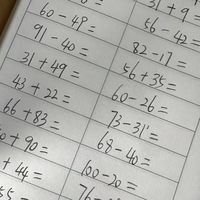 60-49=
91-40=
31+49=
43+22=
66+83=
+90=
+44=
31+9=
56-42=
82-17=
56+35=
60-26=
73-31=
68-40=
100-20=